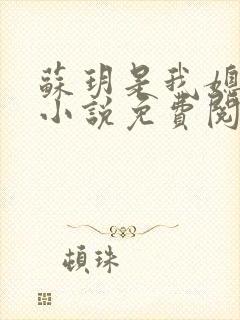 蘇玥是我媳
小說免費閱
頓珠